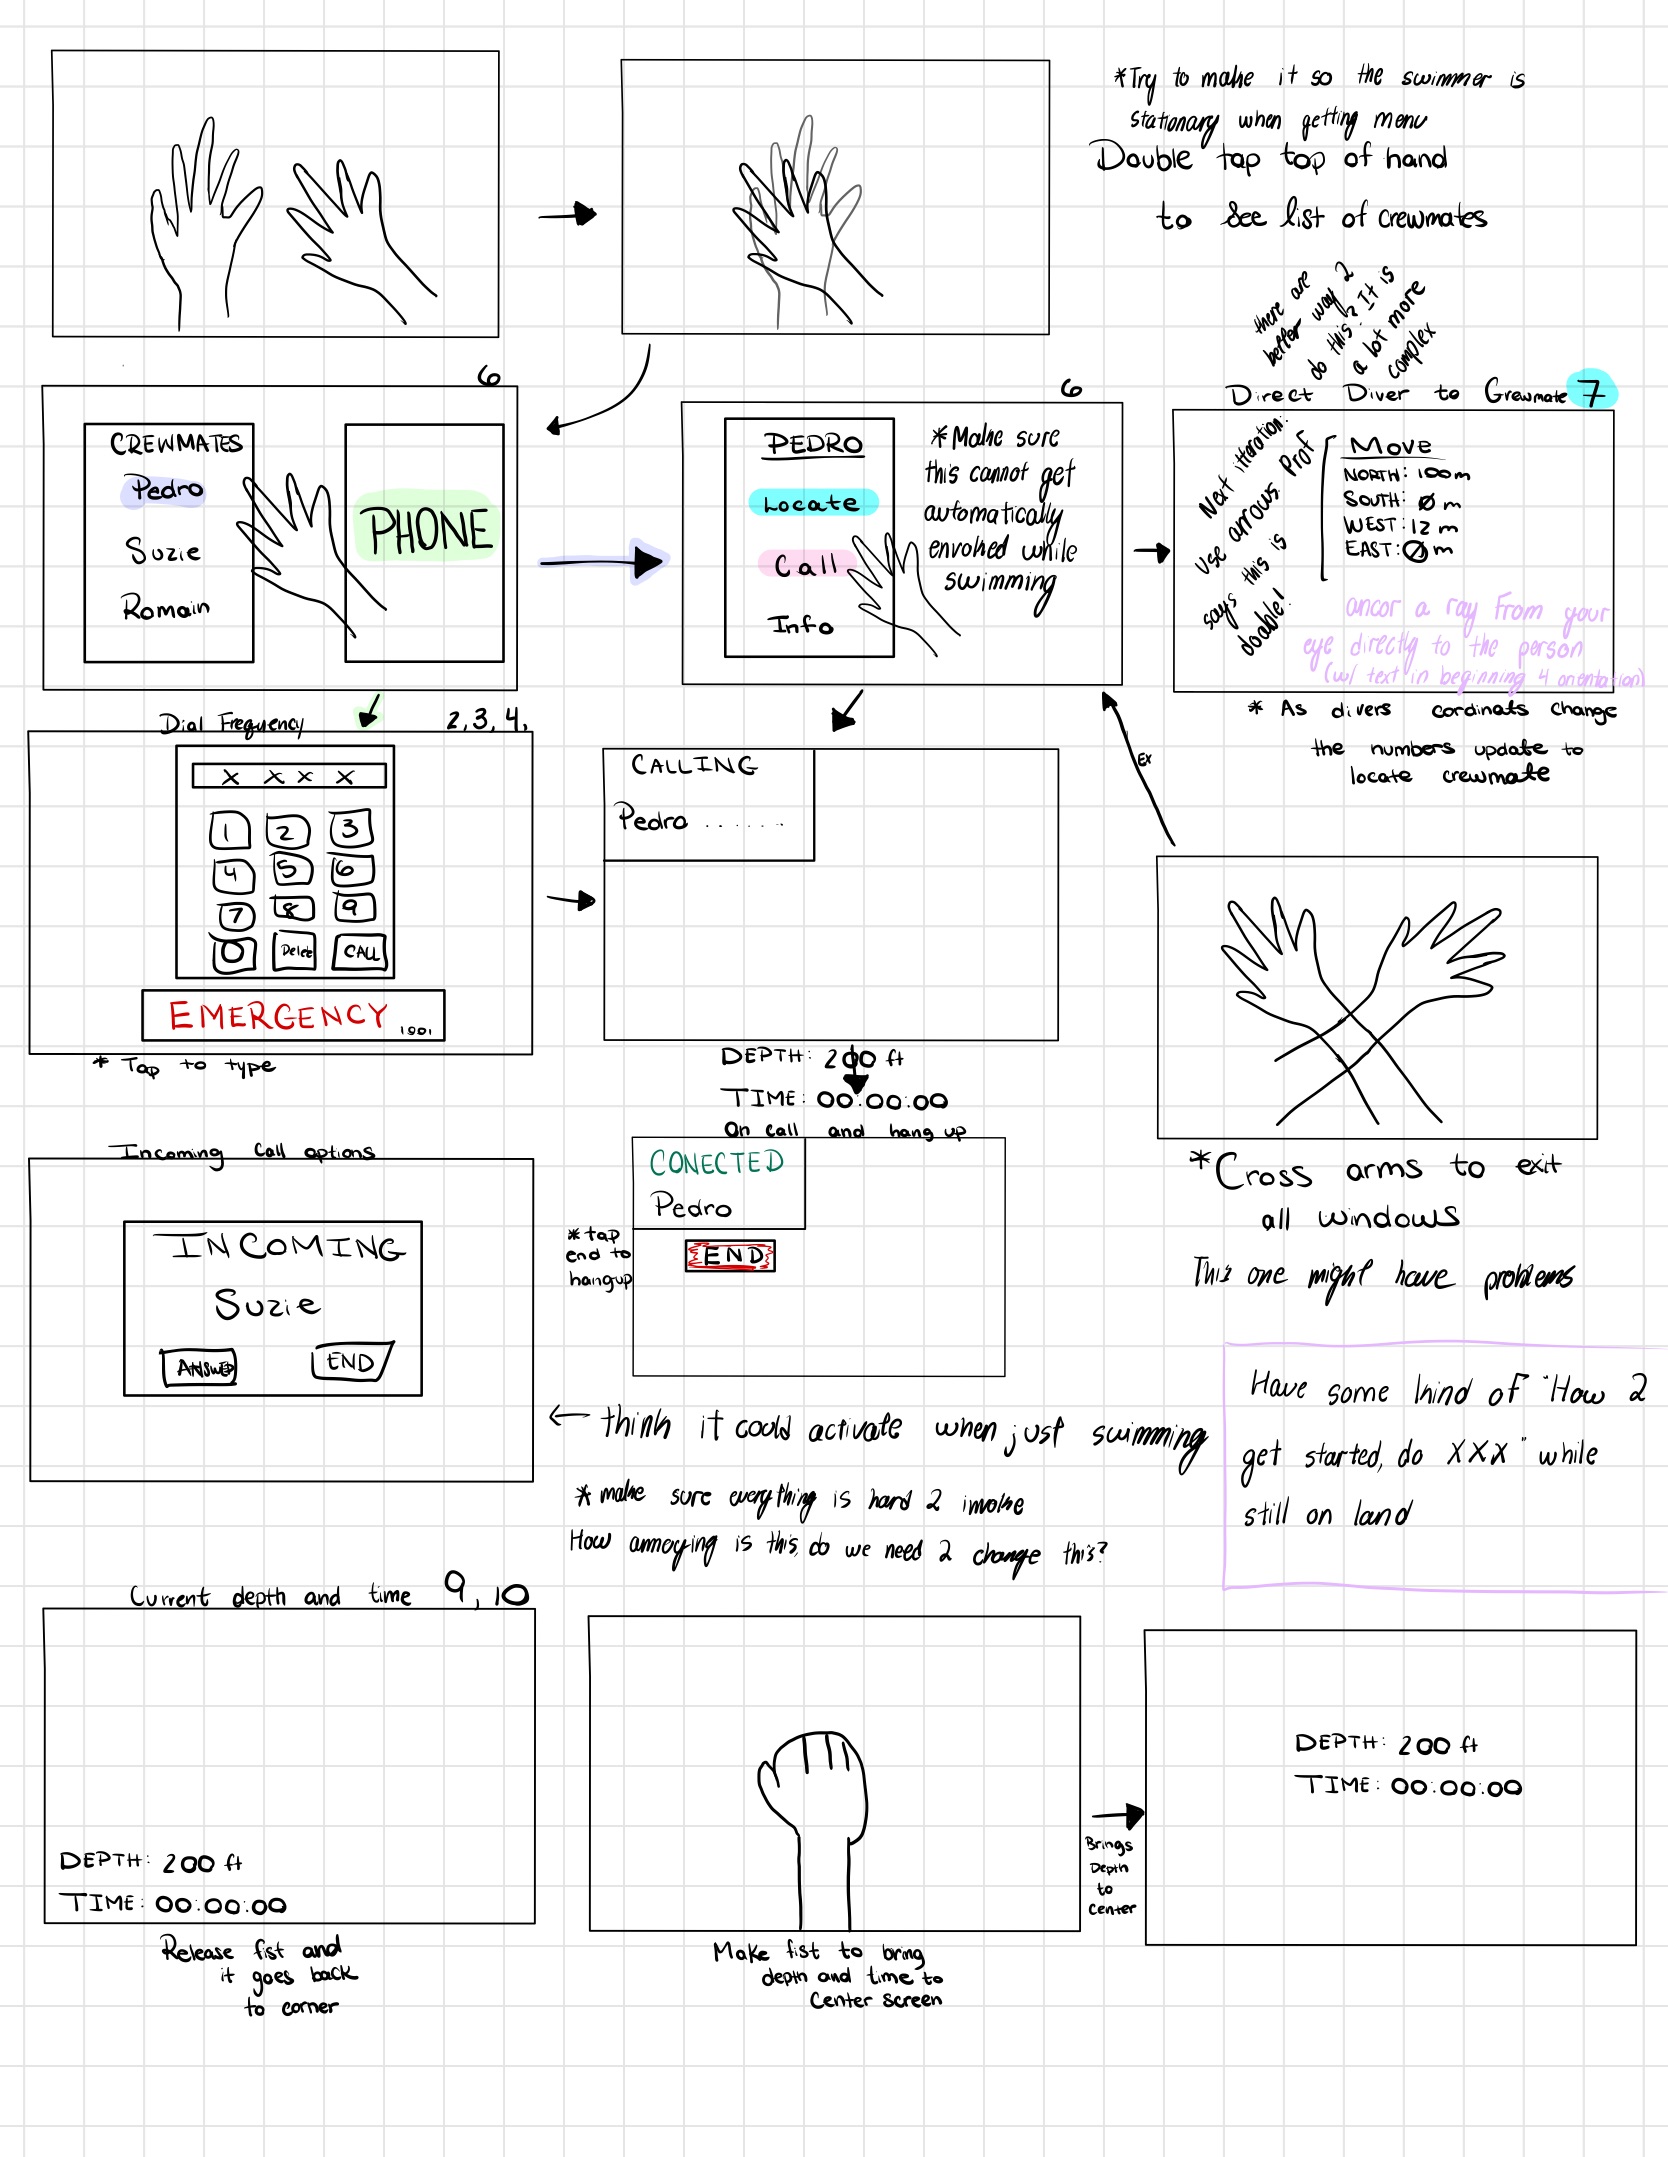 *Try to make it so the swimmer is
stationary when getting menu
Double tap top of hand
to See list of crewmates
there are
better way 2
do this? It is
a lot more
complex
6
CREWMATES
Pedro
Suzie
Romain
PHONE
6
PEDRO
Locate
Call
Info
*Make sure
this cannot get
automatically
envolked while
swimming
Direct Diver to Crewmate 7
Next itteration:
Use arrows. Prof
says this is
doable!
Move
NORTH: 100m
SOUTH: 0 m
WEST: 12 m
EAST: 0 m
ancor a ray from your
eye directly to the person
(w/ text in beginning 4 orientation)
* As divers cordinats change
the numbers update to
locate crewmate
Dial Frequency 2,3,4,
X X X X
1 2 3
4 5 6
7 8 9
0 Delete CALL
EMERGENCY 1001
* Tap to type
CALLING
Pedro ......
Ex
DEPTH: 200 ft
TIME: 00:00:00
On call and hang up
CONECTED
Pedro
END
*tap
end to
hangup
*Cross arms to exit
all windows
This one might have problems
Incoming Call options
INCOMING
Suzie
ANSWER END
← think it could activate when just swimming
* make sure everything is hard 2 invoke
How annoying is this, do we need 2 change this?
Have some kind of "How 2
get started, do XXX" while
still on land
Current depth and time 9, 10
DEPTH: 200 ft
TIME: 00:00:00
Release fist and
it goes back
to corner
Make fist to bring
depth and time to
Center screen
Brings
Depth
to
Center
DEPTH: 200 ft
TIME: 00:00:00